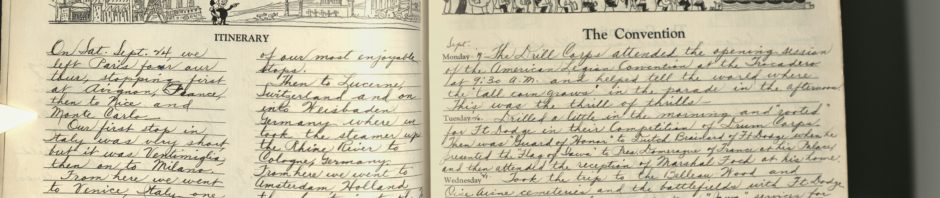 ITINERARY
On Sat. Sept. 24 we
left Paris for our
tour, stopping first
at Avignon, France,
then to Nice and
Monte Carlo.
Our first stop in
Italy was very short
but it was Ventimiglia
then on to Milano.
From here we went
to Venice, Italy, one
of our most enjoyable
stops.
Then to Lucerne,
Switzerland and on
into Weisbaden,
Germany where we
took the steamer up
the Rhine River to
Cologne, Germany.
From here we went to
Amsterdam, Holland,
The Convention
Sept.
Monday The Drill Corps attended the opening session
of the American Legion Convention at the Trocadero
at 9:30 A.M. and helped tell the world where
the "tall corn grows" in the parade in the afternoon.
This was the thrill of thrills!
Tuesday Drilled a little in the morning and "rooted"
for Ft Dodge in their Competition of Drum Corps.
Then was Guard of Honor to Dutch of Ft Dodge when he
presented the Flag of Iowa to Pres. of France at his Palace,
and then attended the reception of Marshal Foch at his home.
Wednesday Took the trip to the Belleau Wood and
cemeteries and the battlefields with Ft. Dodge
services for